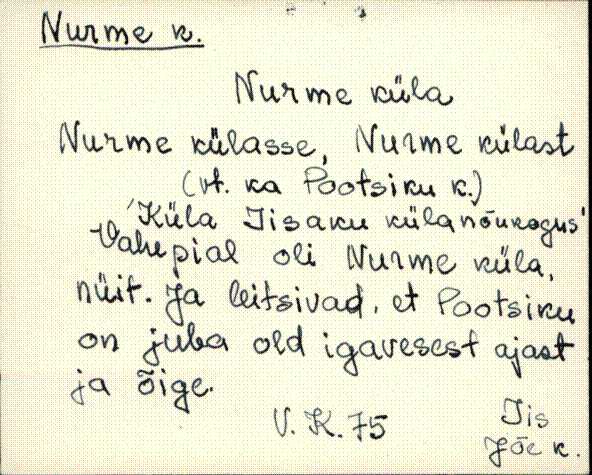 Nurme k.
Nurme küla
Nurme külasse, Nurme külast
(vt. ka Pootsiku k.)
'Küla Iisaku külanõukogus'
Vahepial oli Nurme küla,
nüit. Ja leitsivad, et Pootsiku
on juba old igavesest ajast
ja õige.
V. K. 75
Iis
Jõe k.